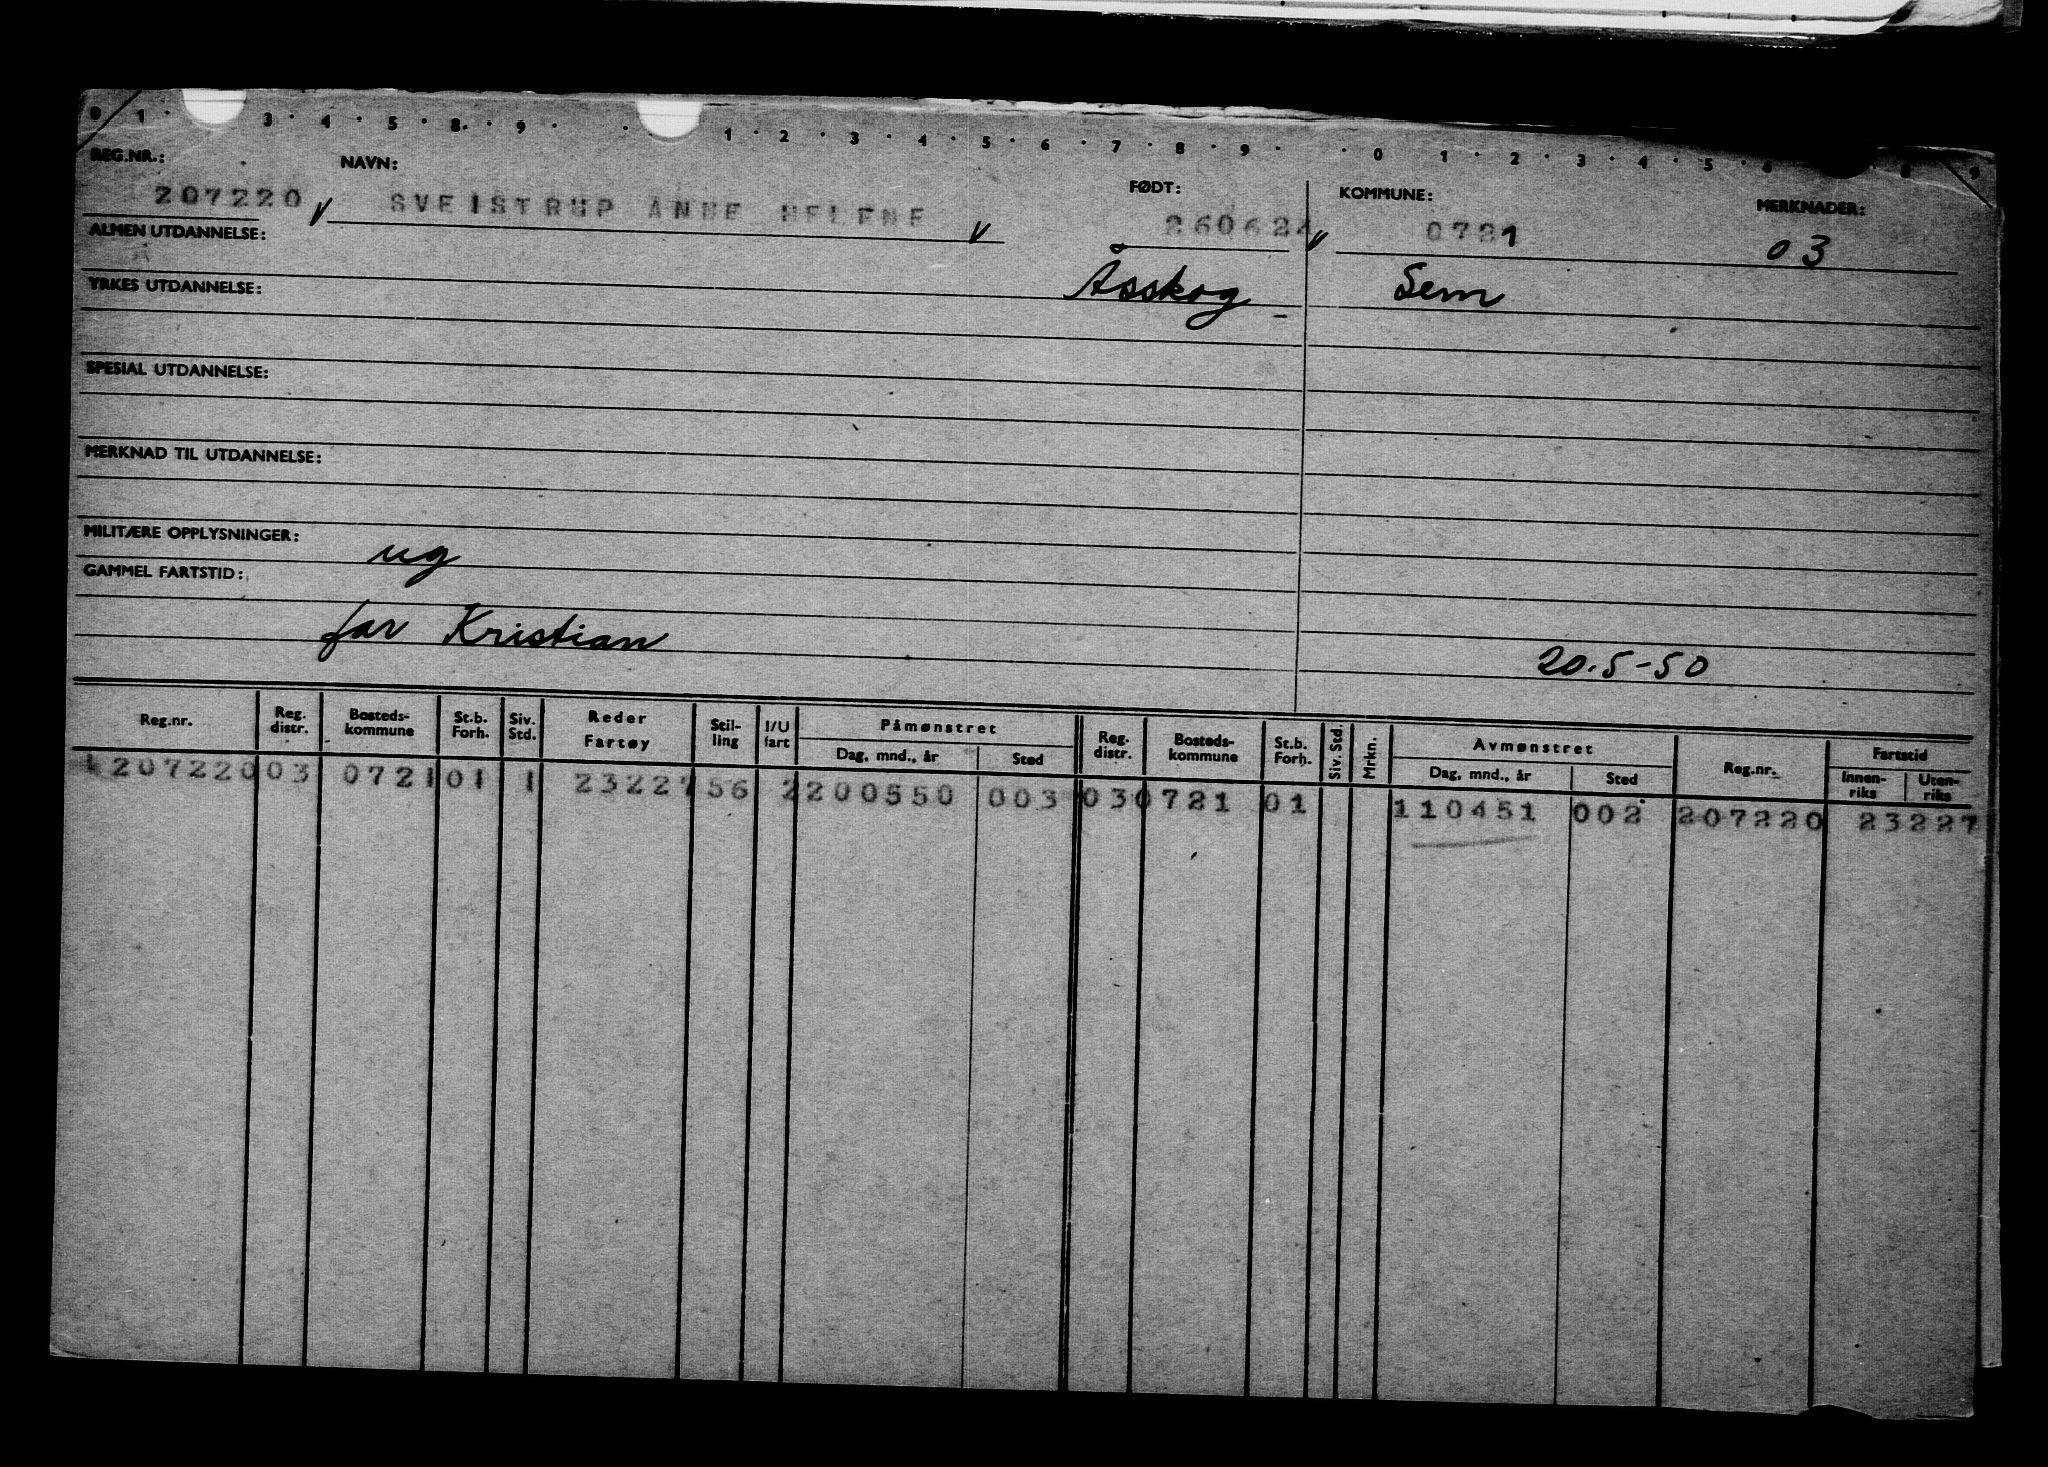 0 1 · 3 · 4 · 5 · 8 · 9 · · 1 · 2 · 3 · 4 · 5 · 6 · 7 · 8 · 9 · · 0 1 · 2 · 3 · 4 · 5 · 6 8 · 9
REG.NR.: NAVN: FØDT: KOMMUNE: MERKNADER:
207220 SVEISTRUP ANNE HELENE 260624 0721 03
ALMEN UTDANNELSE:
Åsskog Sem
YRKES UTDANNELSE:
SPESIAL UTDANNELSE:
MERKNAD TIL UTDANNELSE:
MILITÆRE OPPLYSNINGER:
ug
GAMMEL FARTSTID:
far Kristian
20.5-50
Reg.nr. Reg. distr. Bosteds-kommune St.b. Forh. Siv. Std. Reder Fartøy Stil-ling I/U fart Påmønstret Dag, mnd., år Sted Reg. distr. Bosteds-kommune St.b. Forh. Siv. Std. Mrkn. Avmønstret Dag, mnd., år Sted Reg.nr. Fartstid Innen-riks Uten-riks
207220 03 0721 01 1 23227 56 2 200550 003 03 0721 01 110451 002 207220 23227